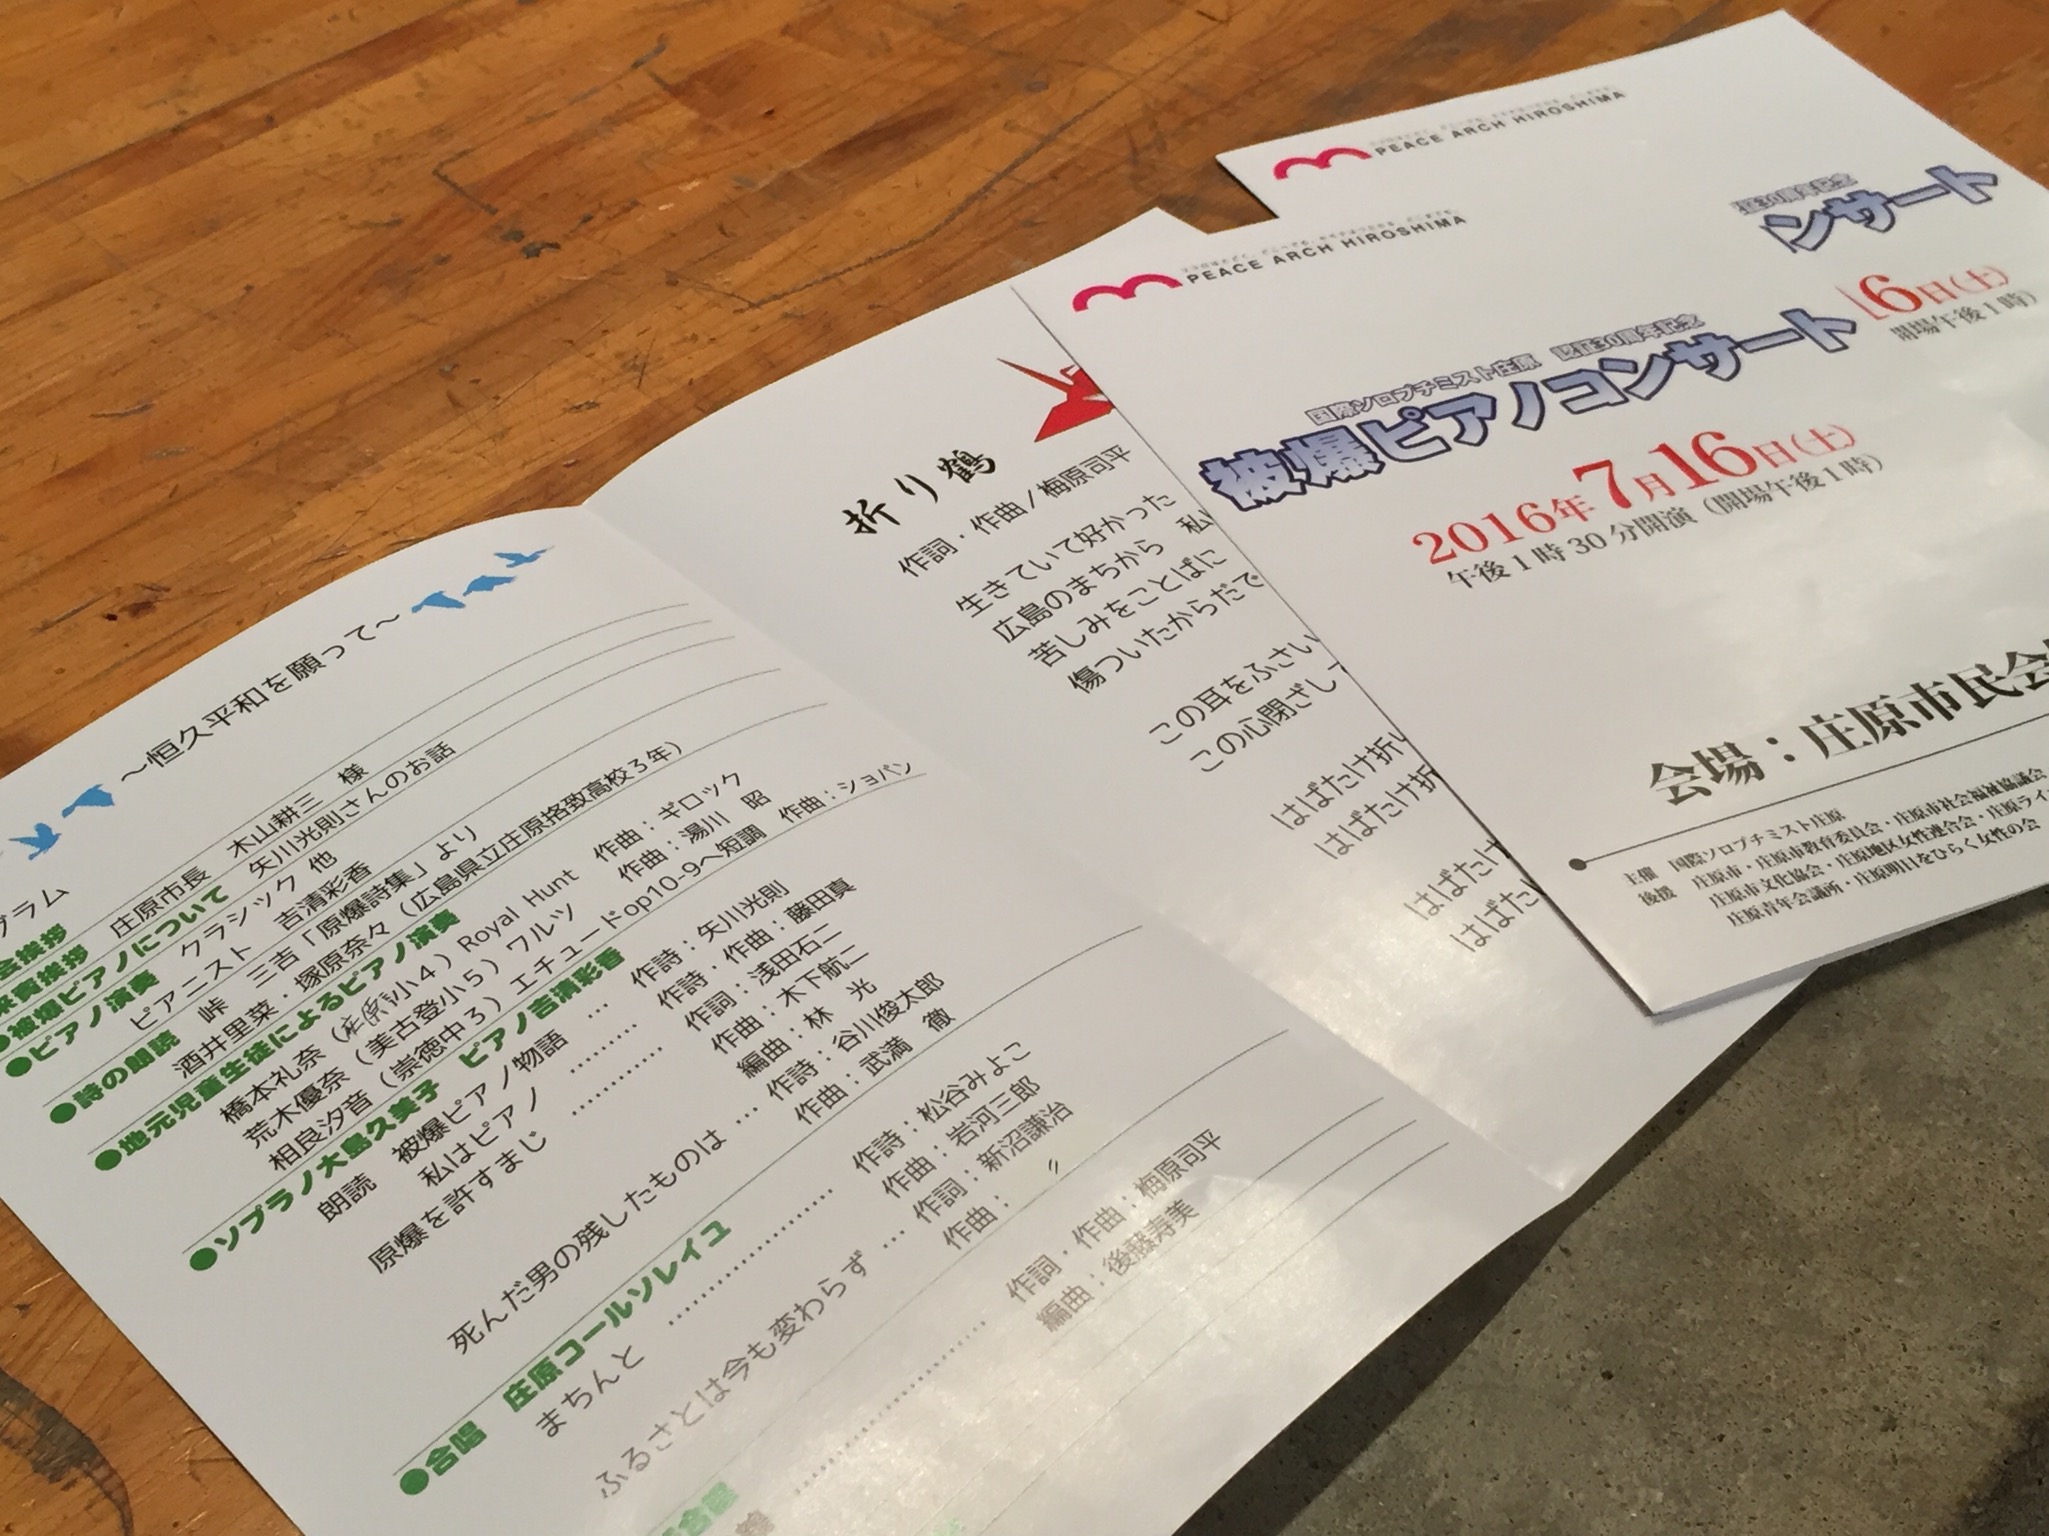 ～恒久平和を願って～
来賓挨拶 庄原市長 木山耕三 様
●被爆ピアノについて 矢川光則さんのお話
●ピアノ演奏 クラシック 他
ピアニスト 吉清彩香
●詩の朗読 峠 三吉「原爆詩集」より
酒井里菜・塚原奈々（広島県立庄原格致高校３年）
●地元児童生徒によるピアノ演奏
橋本礼奈（庄原小４）Royal Hunt 作曲：ギロック
荒木優奈（美古登小５）ワルツ 作曲：湯川 昭
相良汐音（崇徳中３）エチュードop10-9ヘ短調 作曲：ショパン
●ソプラノ大島久美子 ピアノ吉清彩香
朗読 被爆ピアノ物語 … 作詩：矢川光則
私はピアノ ……… 作詩・作曲：藤田真
原爆を許すまじ ……… 作詞：浅田石二
作曲：木下航二
編曲：林 光
死んだ男の残したものは … 作詩：谷川俊太郎
作曲：武満 徹
●合唱 庄原コールソレイユ
まちんと ……………… 作詩：松谷みよこ
作曲：岩河三郎
ふるさとは今も変わらず … 作詞：新沼謙治
作曲： 〃
作詞・作曲：梅原司平
編曲：後藤寿美
折り鶴
作詞・作曲/梅原司平
生きていて好かった
広島のまちから 私
苦しみをことばに
傷ついたからだで
この耳をふさい
この心閉ざし
はばたけ折り
はばたけ折
はばたけ
はばた
PEACE ARCH HIROSHIMA
国際ソロプチミスト庄原 認証30周年記念
被爆ピアノコンサート
2016年7月16日(土)
午後1時30分開演（開場午後1時）
会場：庄原市民会
主催 国際ソロプチミスト庄原
後援 庄原市・庄原市教育委員会・庄原市社会福祉協議会
庄原市文化協会・庄原地区女性連合会・庄原ライ
庄原青年会議所・庄原明日をひらく女性の会
PEACE ARCH HIROSHIMA
30周年記念
ンサート
16日(土)
開場午後1時）